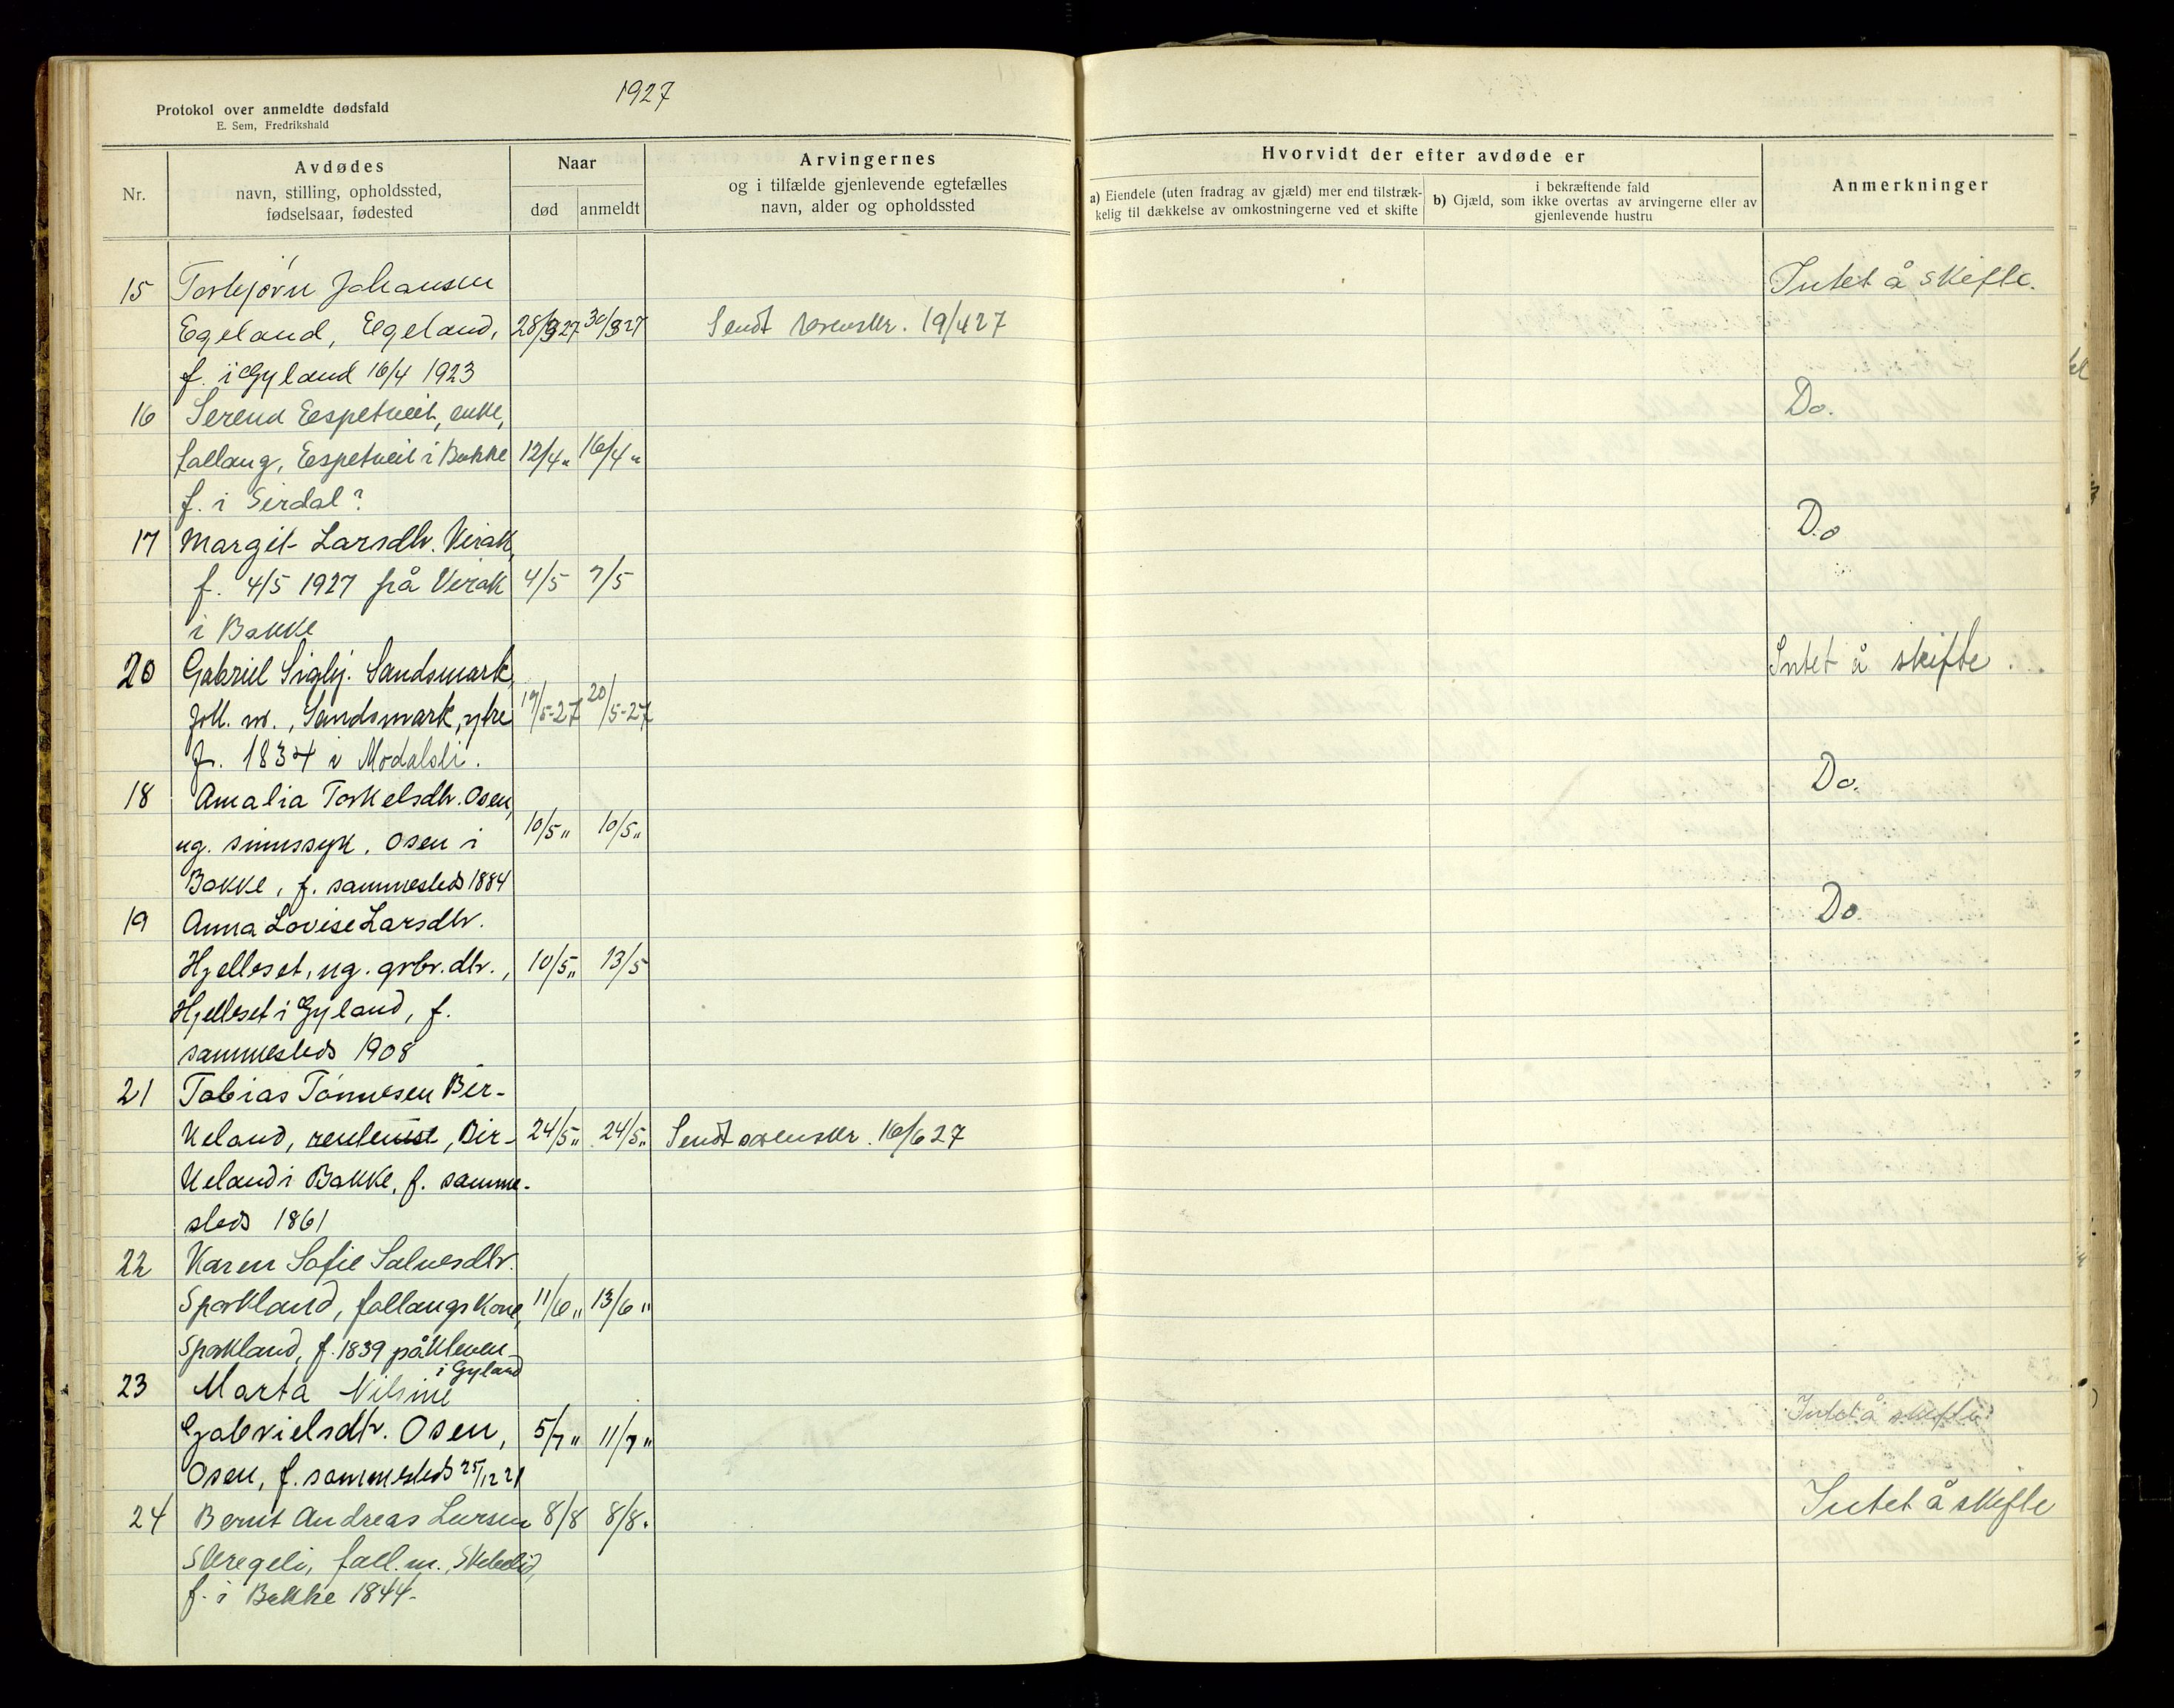 1927
Protokol over anmeldte dødsfald
E. Sem, Fredrikshald
Nr.
Avdødes
navn, stilling, opholdssted,
fødselsaar, fødested
Naar
død
anmeldt
Arvingernes
og i tilfælde gjenlevende egtefælles
navn, alder og opholdssted
Hvorvidt der efter avdøde er
a) Eiendele (uten fradrag av gjæld) mer end tilstræk-
kelig til dækkelse av omkostningerne ved et skifte
i bekræftende fald
b) Gjæld, som ikke overtas av arvingerne eller av
gjenlevende hustru
Anmerkninger
15 Torbjørn Johansen Intet å skifte.
Egeland, Egeland, 28/3 27 30/3 27 Sendt sorenskr. 19/4 27
f. i Gyland 16/4 1923
16 Serena Eespetveit, enke, Do.
fallang, Eespetveit i Bakke 12/4 " 16/4 "
f. i Sirdal?
17 Margit Larsdtr. Virak, Do
f. 4/5 1927 på Virak 4/5 7/5
i Bakke
20 Gabriel Sigbj. Sandsmark, Intet å skifte.
foll. m., Sandsmark, ytre 17/5-27 20/5-27
f. 1834 i Modalsli.
18 Amalia Torkelsdtr. Osen, Do.
ug. sinnssyk, Osen i 10/5 " 10/5 "
Bakke, f. sammesteds 1884
19 Anna Lovise Larsdtr. Do
Hjelleset, ug. grbr. dtr., 10/5 " 13/5
Hjelleset i Gyland, f.
sammesteds 1908
21 Tobias Tønnesen Bir-
keland, rentenist, Bir- 24/5 " 24/5 " Sendt sorenskr. 16/6 27
keland i Bakke, f. samme-
steds 1861
22 Karen Sofie Salvesdtr.
Sparkland, fallangskone, 11/6 " 13/6 "
Sparkland, f. 1839 på Kleven
i Gyland
23 Marta Nilsine Intet å skifte
Gabrielsdtr. Osen, 5/7 " 11/7 "
Osen, f. sammesteds 25/12 21
24 Bernt Andreas Larsen 8/8 8/8. Intet å skifte
Skregeli, fall. m.,
f. i Bakke 1844.